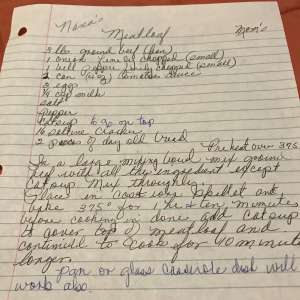 Nana's Mom's
Meatloaf
3 lbs ground beef (lean)
1 onion finely chopped (small)
1 bell pepper finely chopped (small)
2 can (6 oz) tomatoe sauce
2 eggs
1/4 cup milk
salt
pepper
catsup to go on top
16 saltine crackers
2 pieces of day old bread
Preheat oven 375
In a large mixing bowl mix ground
beef with all the ingredients except
catsup. Mix throughly.
Place in cast iron skillet and
bake 375° for 1 hr & ten minutes
before cooking is done add catsup
to cover top of meatloaf and
continue to cook for 10 minutes
longer.
Pan or glass casserole dish will
work also.